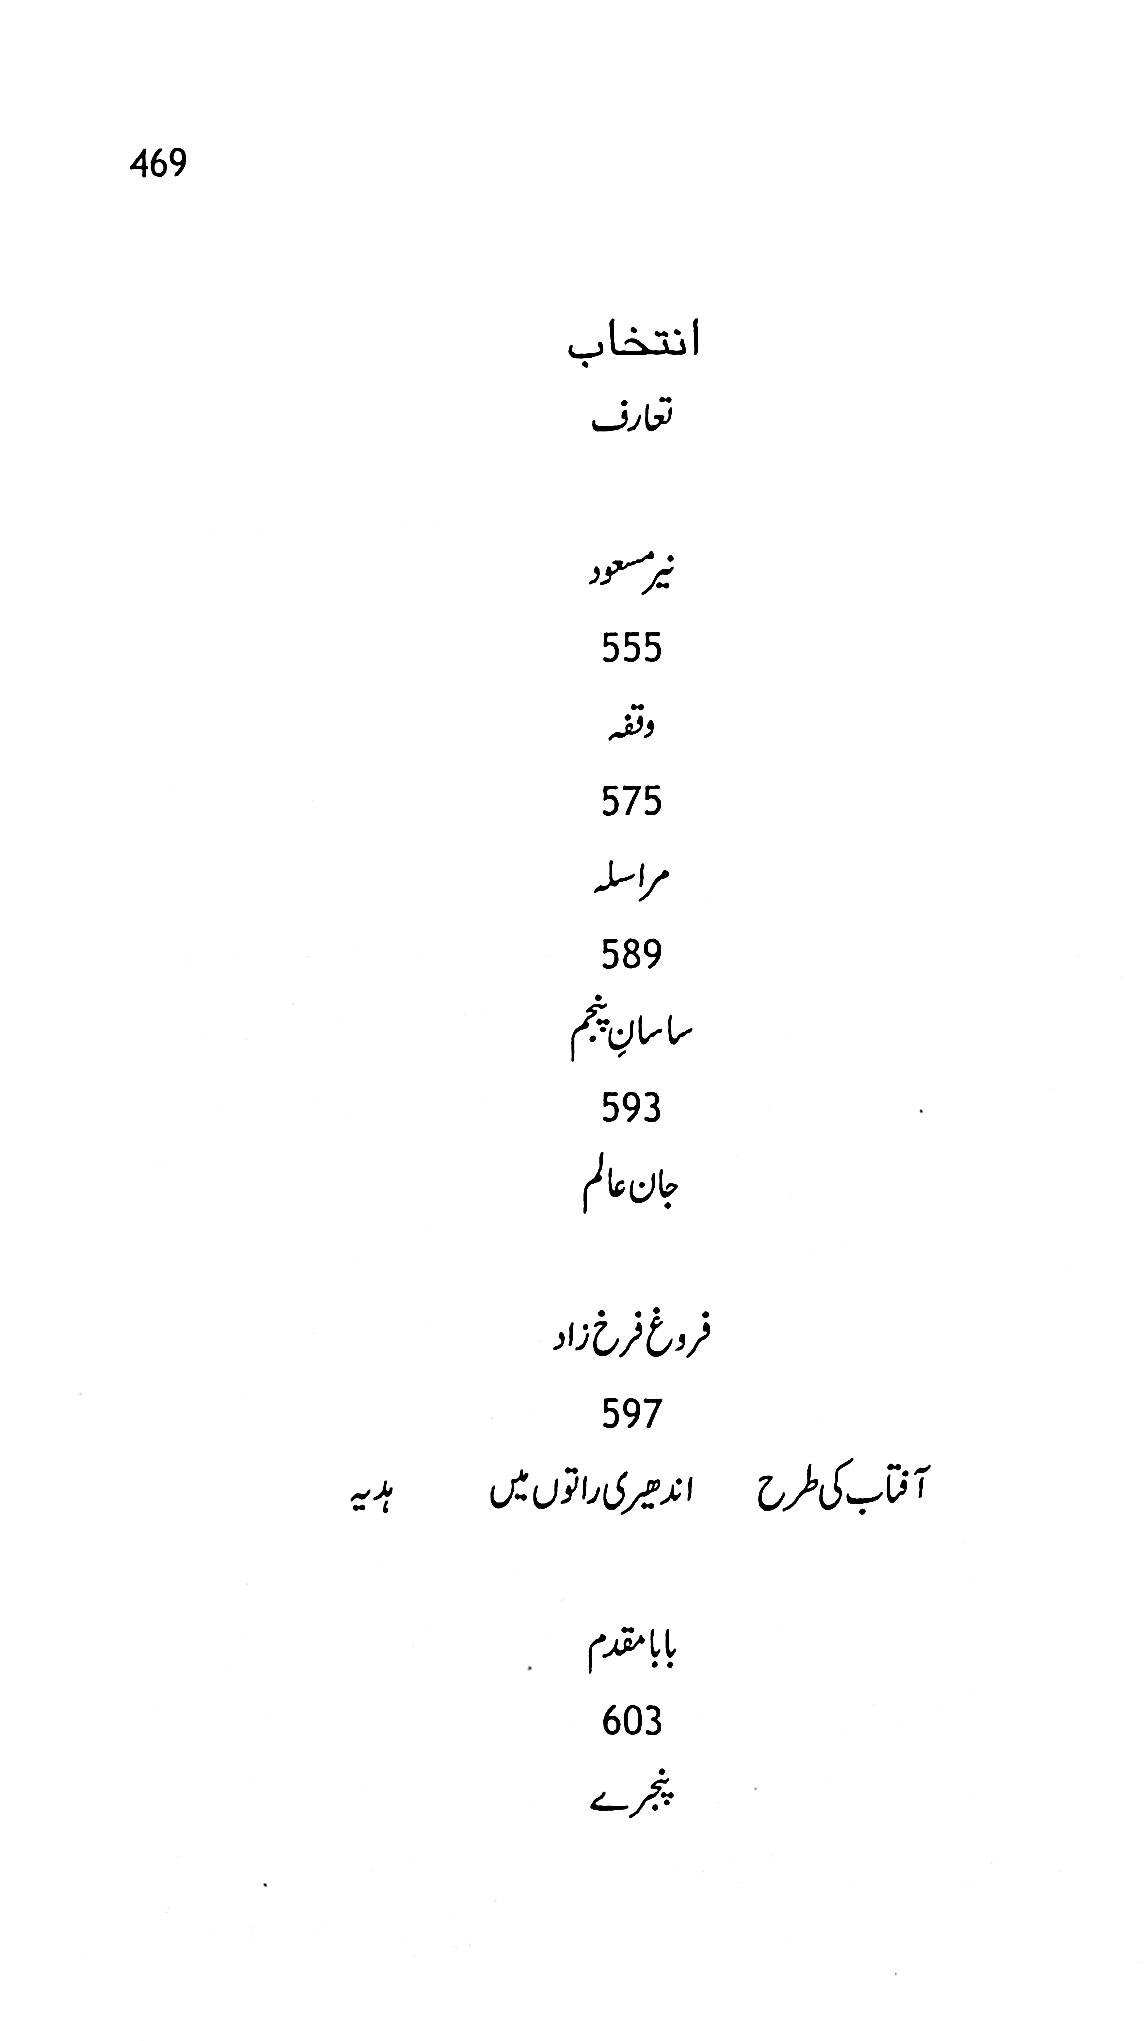 469
انتخاب
تعارف
نیر مسعود
555
وقفہ
575
مراسلہ
589
ساسانِ پنجم
593
جان عالم
فروغ فرخ زاد
597
آفتاب کی طرح اندھیری راتوں میں ہدیہ
بابا مقدم
603
پنجرے